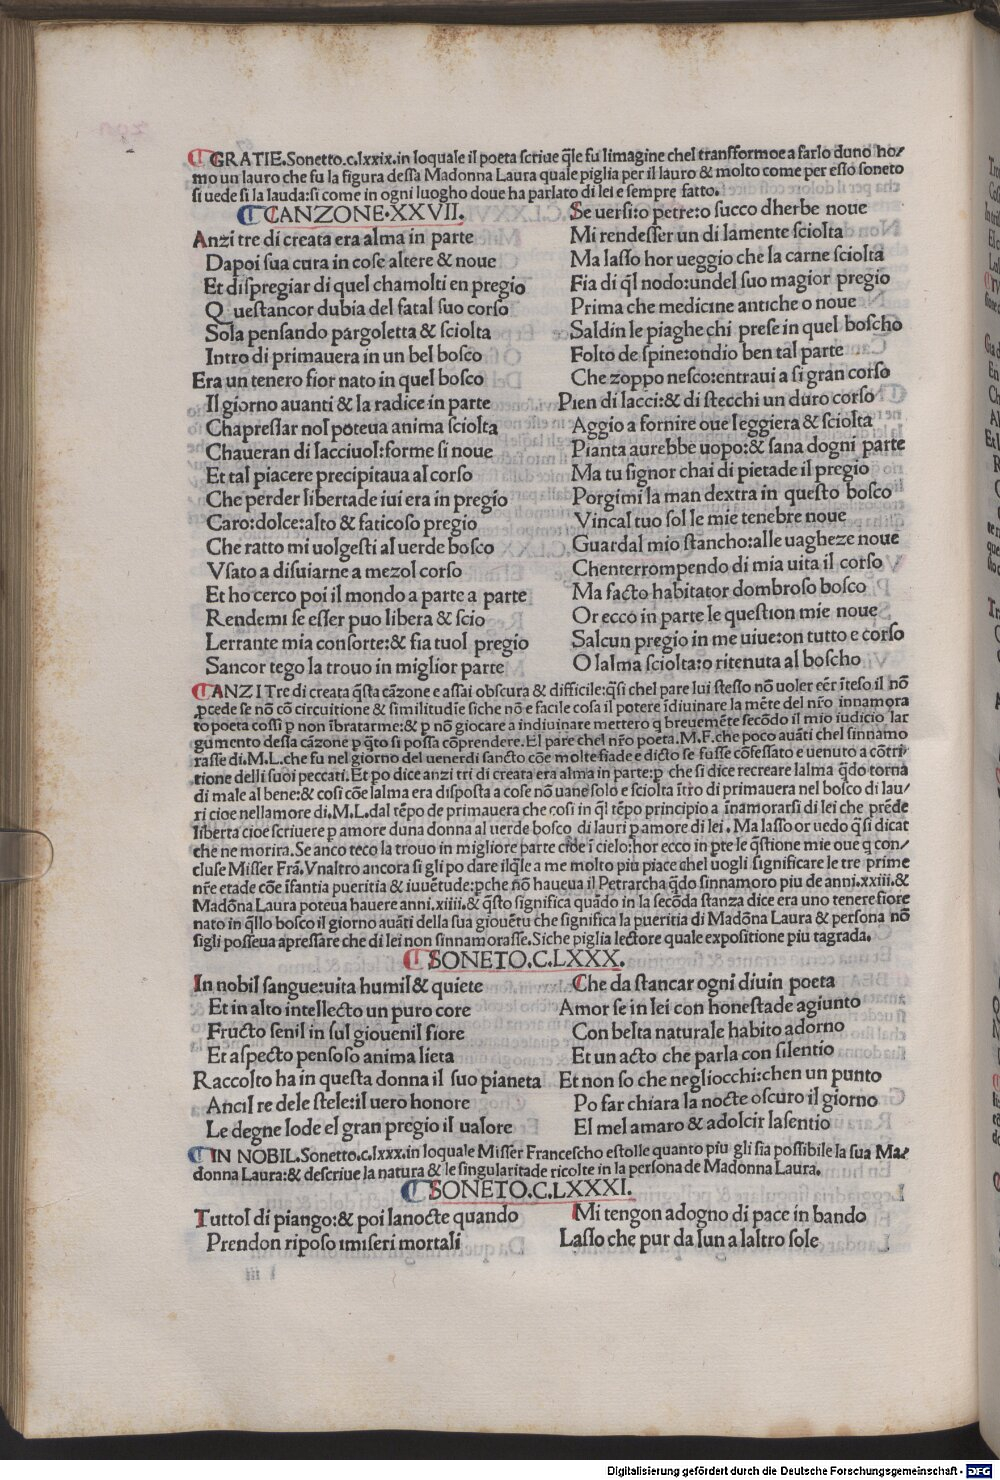 GRATIE.Sonetto.c.lxxix.in loquale il poeta scriue q̄le fu limagine chel transformoe a farlo duno ho/
mo un lauro che fu la figura dessa Madonna Laura quale piglia per il lauro & molto come per esso soneto
si uede si la lauda:si come in ogni luogho doue ha parlato di lei e sempre fatto.
CANZONE.XXVII.
Anzi tre di creata era alma in parte
Dapoi sua cura in cose altere & noue
Et dispregiar di quel chamolti en pregio
Questancor dubia del fatal suo corso
Sola pensando pargoletta & sciolta
Intro di primauera in un bel bosco
Era un tenero fior nato in quel bosco
Il giorno auanti & la radice in parte
Chapressar nol poteua anima sciolta
Chaueran di lacciuol:forme si noue
Et tal piacere precipitaua al corso
Che perder libertade iui era in pregio
Caro:dolce:alto & faticoso pregio
Che ratto mi uolgesti al uerde bosco
Vsato a disuiarne a mezol corso
Et ho cerco poi il mondo a parte a parte
Rendemi se esser puo libera & scio
Lerrante mia consorte:& fia tuol pregio
Sancor tego la trouo in miglior parte
Se uersi:o petre:o succo dherbe noue
Mi rendesser un di lamente sciolta
Ma lasso hor ueggio che la carne sciolta
Fia di q̄l nodo:undel suo magior pregio
Prima che medicine antiche o noue
Saldin le piaghe chi prese in quel boscho
Folto de spine:ondio ben tal parte
Che zoppo nesco:entraui a si gran corso
Pien di lacci:& di stecchi un duro corso
Aggio a fornire oue leggiera & sciolta
Pianta aurebbe uopo:& sana dogni parte
Ma tu signor chai di pietade il pregio
Porgimi la man dextra in questo bosco
Vincal tuo sol le mie tenebre noue
Guardal mio stancho:alle uagheze noue
Chenterrompendo di mia uita il corso
Ma facto habitator dombroso bosco
Or ecco in parte le question mie noue
Salcun pregio in me uiue:on tutto e corso
O lalma sciolta:o ritenuta al boscho
ANZI Tre di creata q̄sta cāzone e assai obscura & difficile:q̄si chel pare lui stesso nō uoler eēr īteso il nō
pcede se nō cō circuitione & similitudīe siche nō e facile cosa il potere īdiuinare la mēte del nr̄o innamora
to poeta cossi p non ībratarme:& p nō giocare a indiuinare mettero q breuemēte secōdo il mio iudicio lar
gumento dessa cāzone p q̄to si possa cōprendere.El pare chel nr̄o poeta.M.F.che poco auāti chel sinnamo
rasse di.M.L.che fu nel giorno del uenerdi sancto cōe molte fiade e dicto se fusse cōfessato e uenuto a cōtri
tione delli suoi peccati.Et po dice anzi tri di creata era alma in parte:p che si dice recreare lalma q̄do torna
di male al bene:& cosi cōe lalma era disposta a cose nō uane solo e sciolta ītro di primauera nel bosco di lau/
ri cioe nellamore di.M.L.dal tēpo de primauera che cosi in q̄l tēpo principio a īnamorarsi di lei che prēde
liberta cioe scriuere p amore duna donna al uerde bosco di lauri p amore di lei. Ma lasso or uedo q̄si dicat
che ne morira.Se anco teco la trouo in migliore parte cioe ī cielo:hor ecco in pte le q̄stione mie oue q con/
cluse Misser Frā.Vnaltro ancora si gli po dare ilq̄le a me molto piu piace chel uogli significare le tre prime
nr̄e etade cōe īfantia pueritia & iuuētude:pche nō haueua il Petrarcha q̄do sinnamoro piu de anni.xxiii.&
Madōna Laura poteua hauere anni.xiiii.& q̄sto significa quādo in la secōda stanza dice era uno tenere fiore
nato in q̄llo bosco il giorno auāti della sua giouētu che significa la pueritia di Madōna Laura & persona nō
sigli posseua apressare che di lei non sinnamorasse.Siche piglia lectore quale expositione piu tagrada.
SONETO.C.LXXX.
In nobil sangue:uita humil & quiete
Et in alto intellecto un puro core
Fructo senil in sul giouenil fiore
Et aspecto pensoso anima lieta
Raccolto ha in questa donna il suo pianeta
Ancil re dele stele:il uero honore
Le degne lode el gran pregio il ualore
Che da stancar ogni diuin poeta
Amor se in lei con honestade agiunto
Con belta naturale habito adorno
Et un acto che parla con silentio
Et non so che negliocchi:chen un punto
Po far chiara la nocte oscuro il giorno
El mel amaro & adolcir lasentio
IN NOBIL.Sonetto.c.lxxx.in loquale Misser Francescho estolle quanto piu gli sia possibile la sua Ma/
donna Laura:& descriue la natura & le singularitade ricolte in la persona de Madonna Laura.
SONETO.C.LXXXI.
Tuttol di piango:& poi lanocte quando
Prendon riposo imiseri mortali
Mi tengon adogno di pace in bando
Lasso che pur da lun a laltro sole
Digitalisierung gefördert durch die Deutsche Forschungsgemeinschaft - DFG